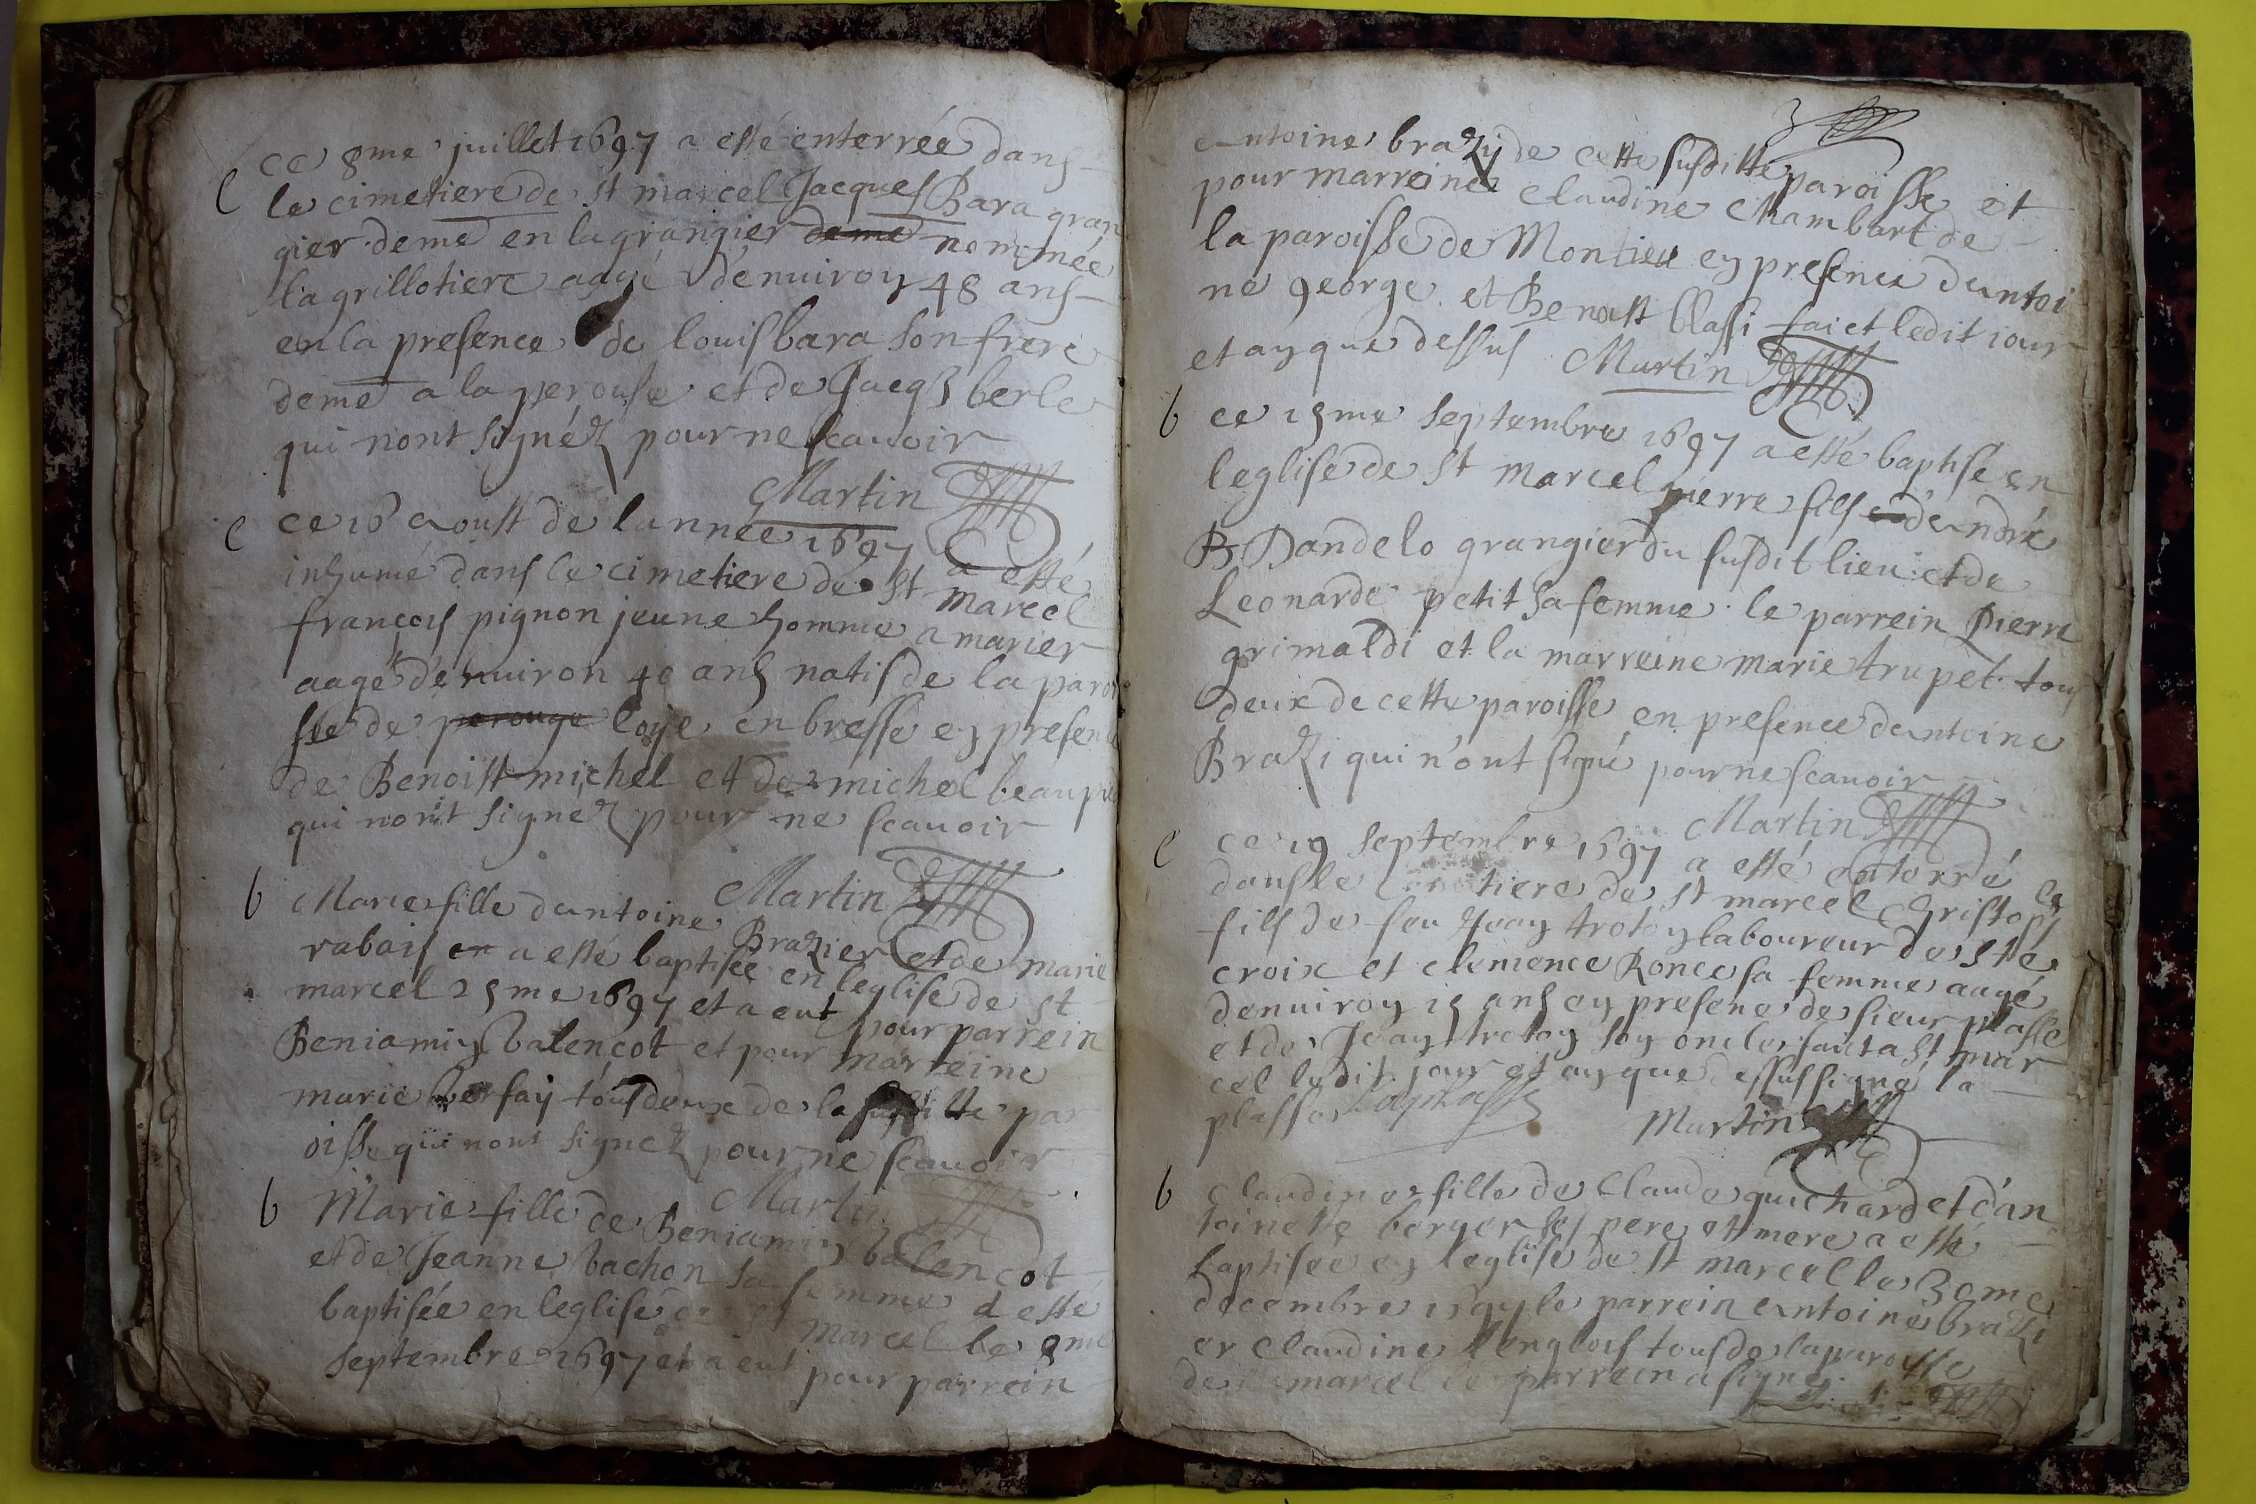 ce 8me juillet 1697 a esté enterrée dans
e le cimetiere de st marcel Jacques Bara gran
gier deme en la grangier deme nommée
la grillotiere aagé d'enuiron 48 ans
en la presence de louis bara son frere
deme a la perouse et de Jacq3 berle
qui nont signéz pour ne scauoir
Martin
e ce 16 aoust de lannee 1697 a esté
inhumé dans le cimetiere de st marcel
françois pignon jeune homme a marier
aagé d'enuiron 40 ans natif de la paroi
sse de perouge loye en bresse en presence
de Benoist michel et de michel beaupre
qui nont signéz pour ne scauoir
Martin
b Marie fille dantoine Brazier et de marie
rabais en a esté baptisée en leglise de st
marcel 25me 1697 et a eut pour parrein
Beniamin Valençot et pour marreine
marie berfay tous deux de la susditte par
oisse qui nont signéz pour ne scauoir
Martin
b Marie fille de Beniamin balençot
et de Jeanne bachon sa femme a esté
baptisée en leglise de st marcel le 8me
septembre 1697 et a eut pour parrein
antoine brazy de cette susditte paroisse et
pour marreine Claudine Chambart de
la paroisse de Montieu en presence dantoi
ne george et Benoist Blassi faict ledit iour
et an que dessus Martin
b ce 15me septembre 1697 a esté baptisé en
leglise de st marcel pierre fils dandré
B Dandelo grangier du susdit lieu et de
Leonarde petit sa femme le parrein Pierre
grimaldi et la marreine marie trupet tous
deux de cette paroisse en presence dantoine
Brazi qui n'ont signé pour ne scauoir
Martin
e ce 19 septembre 1697 a esté enterré
dans le cimetiere de st marcel Christophle
fils de feu Jean trotoy laboureur de ste
croix et clemence Ronce sa femme aagé
denuiron 15 ans en presence de sieur plasse
et de Jean trotoy son oncle fait a st mar
cel ledit jour et an que dessus signé la
plasse Laplasse
Martin
b Claudine fille de Claude guichard et d'an
toinette berger ses pere et mere a esté
baptisée en leglise de st marcel le 30me
decembre 1697 le parrein antoine brazi
er Claudine l'englois tous de la paroisse
de st marcel le parrein a signé